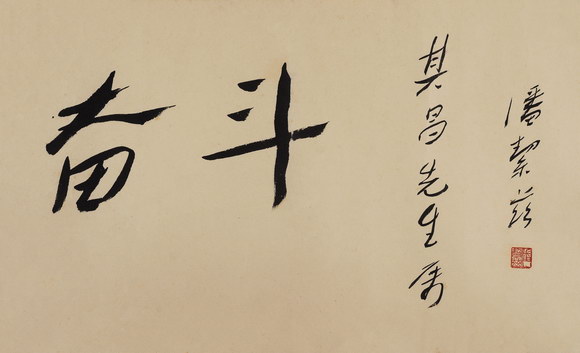 奋斗
其昌先生属
潘絜兹